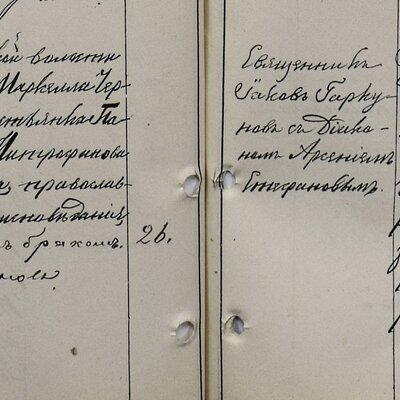 кой волости
Маркеллъ Чер-
Митрофанова
православ-
исповѣданія
бракомъ.
26.
Священникъ
Іаковъ Гарку-
новъ съ Діако-
номъ Арсеніемъ
Епифановымъ.